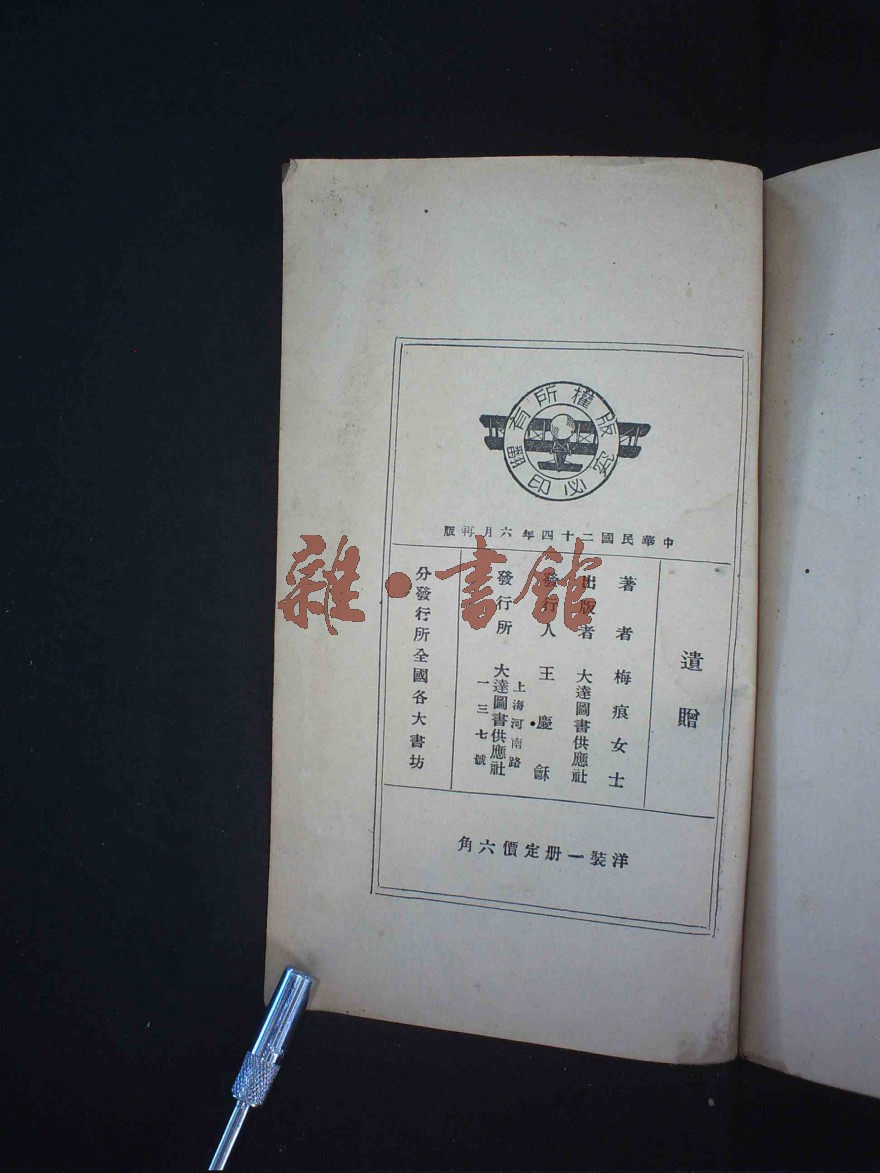 版權所有
翻印必究
中華民國二十四年六月再版
遺贈
著者 梅痕女士
出版者 大達圖書供應社
發行人 王慶龢
發行所 大達圖書供應社
上海河南路
一三七號
分發行所全國各大書坊
洋裝一册定價六角
雜·書館